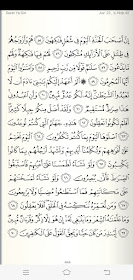 Surah Ya-Sin
إِنَّ أَصْحَٰبَ ٱلْجَنَّةِ ٱلْيَوْمَ فِى شُغُلٍ فَٰكِهُونَ ٥٥ هُمْ وَأَزْوَٰجُهُمْ
فِى ظِلَٰلٍ عَلَى ٱلْأَرَآئِكِ مُتَّكِـُٔونَ ٥٦ لَهُمْ فِيهَا فَٰكِهَةٌ وَلَهُم
مَّا يَدَّعُونَ ٥٧ سَلَٰمٌ قَوْلًا مِّن رَّبٍّ رَّحِيمٍ ٥٨ وَٱمْتَٰزُوا۟ ٱلْيَوْمَ
أَيُّهَا ٱلْمُجْرِمُونَ ٥٩ ۞ أَلَمْ أَعْهَدْ إِلَيْكُمْ يَٰبَنِىٓ ءَادَمَ أَن لَّا
تَعْبُدُوا۟ ٱلشَّيْطَٰنَ ۖ إِنَّهُۥ لَكُمْ عَدُوٌّ مُّبِينٌ ٦٠ وَأَنِ ٱعْبُدُونِى ۚ
هَٰذَا صِرَٰطٌ مُّسْتَقِيمٌ ٦١ وَلَقَدْ أَضَلَّ مِنكُمْ جِبِلًّا كَثِيرًا ۖ
أَفَلَمْ تَكُونُوا۟ تَعْقِلُونَ ٦٢ هَٰذِهِۦ جَهَنَّمُ ٱلَّتِى كُنتُمْ تُوعَدُونَ
٦٣ ٱصْلَوْهَا ٱلْيَوْمَ بِمَا كُنتُمْ تَكْفُرُونَ ٦٤ ٱلْيَوْمَ نَخْتِمُ
عَلَىٰٓ أَفْوَٰهِهِمْ وَتُكَلِّمُنَآ أَيْدِيهِمْ وَتَشْهَدُ أَرْجُلُهُم بِمَا
كَانُوا۟ يَكْسِبُونَ ٦٥ وَلَوْ نَشَآءُ لَطَمَسْنَا عَلَىٰٓ أَعْيُنِهِمْ
فَٱسْتَبَقُوا۟ ٱلصِّرَٰطَ فَأَنَّىٰ يُبْصِرُونَ ٦٦ وَلَوْ نَشَآءُ
لَمَسَخْنَٰهُمْ عَلَىٰ مَكَانَتِهِمْ فَمَا ٱسْتَطَٰعُوا۟ مُضِيًّا وَلَا
يَرْجِعُونَ ٦٧ وَمَن نُّعَمِّرْهُ نُنَكِّسْهُ فِى ٱلْخَلْقِ ۖ أَفَلَا يَعْقِلُونَ
٦٨ وَمَا عَلَّمْنَٰهُ ٱلشِّعْرَ وَمَا يَنۢبَغِى لَهُۥٓ ۚ إِنْ هُوَ إِلَّا ذِكْرٌ وَقُرْءَانٌ
مُّبِينٌ ٦٩ لِّيُنذِرَ مَن كَانَ حَيًّا وَيَحِقَّ ٱلْقَوْلُ عَلَى ٱلْكَٰفِرِينَ ٧٠
444